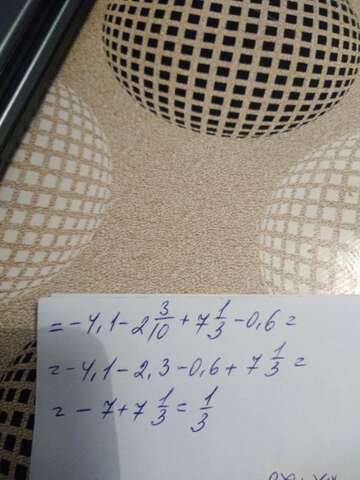 = -4,1 - 2 3/10 + 7 1/3 - 0,6 =
= -4,1 - 2,3 - 0,6 + 7 1/3 =
= -7 + 7 1/3 = 1/3